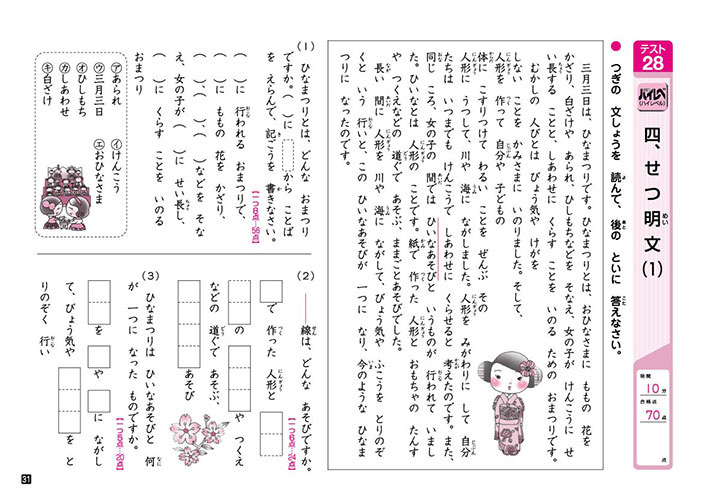 テスト
28
ハイレベ
(ハイレベル)
四、せつ明文(1)
時間
10分
合格点
70点
点
●つぎの 文しょうを 読んで、後の といに 答えなさい。
三月三日は、ひなまつりです。ひなまつりとは、おひなさまに ももの 花を
かざり、白ざけや あられ、ひしもちなどを そなえ、女の子が けんこうに せ
い長する ことと、しあわせに くらす ことを いのる ための おまつりです。
むかしの 人びとは びょう気や けがを
しない ことを かみさまに いのりました。そして、
人形を 作って 自分や 子どもの
体に こすりつけて わるい ことを ぜんぶ その
人形に うつして、川や 海に ながしました。人形を みがわりに して 自分
たちは いつまでも けんこうで しあわせに くらせると 考えたのです。また、
同じ ころ、女の子の 間では ひいなあそびと いうものが 行われて いまし
た。ひいなとは 人形の ことです。紙で 作った 人形と おもちゃの たんす
や つくえなどの 道ぐで あそぶ、ままごとあそびでした。
長い 間に 人形を 川や 海に ながして、びょう気や ふこうを とりのぞ
くと いう 行いと、この ひいなあそびが 一つに なり、今のような ひなま
つりに なったのです。
(1) ひなまつりとは、どんな おまつり
ですか。( )に から ことば
を えらんで、記ごうを 書きなさい。
【一つ8点—56点】
( )に 行われる おまつりで、
( )に ももの 花を かざり、
( )、( )、( )などを そな
え、女の子が ( )に せい長し、
( )に くらす ことを いのる
おまつり
㋐あられ ㋑けんこう
㋒三月三日 ㋓おひなさま
㋔ひしもち
㋕しあわせ
㋖白ざけ
(2) ―線は、どんな あそびですか。
【一つ6点—24点】
で 作った 人形と
の や つくえ
などの 道ぐで あそぶ、
あそび
(3) ひなまつりは ひいなあそびと 何
が 一つに なった ものですか。
【一つ5点—20点】
を や に ながし
て、びょう気や を と
りのぞく 行い
31